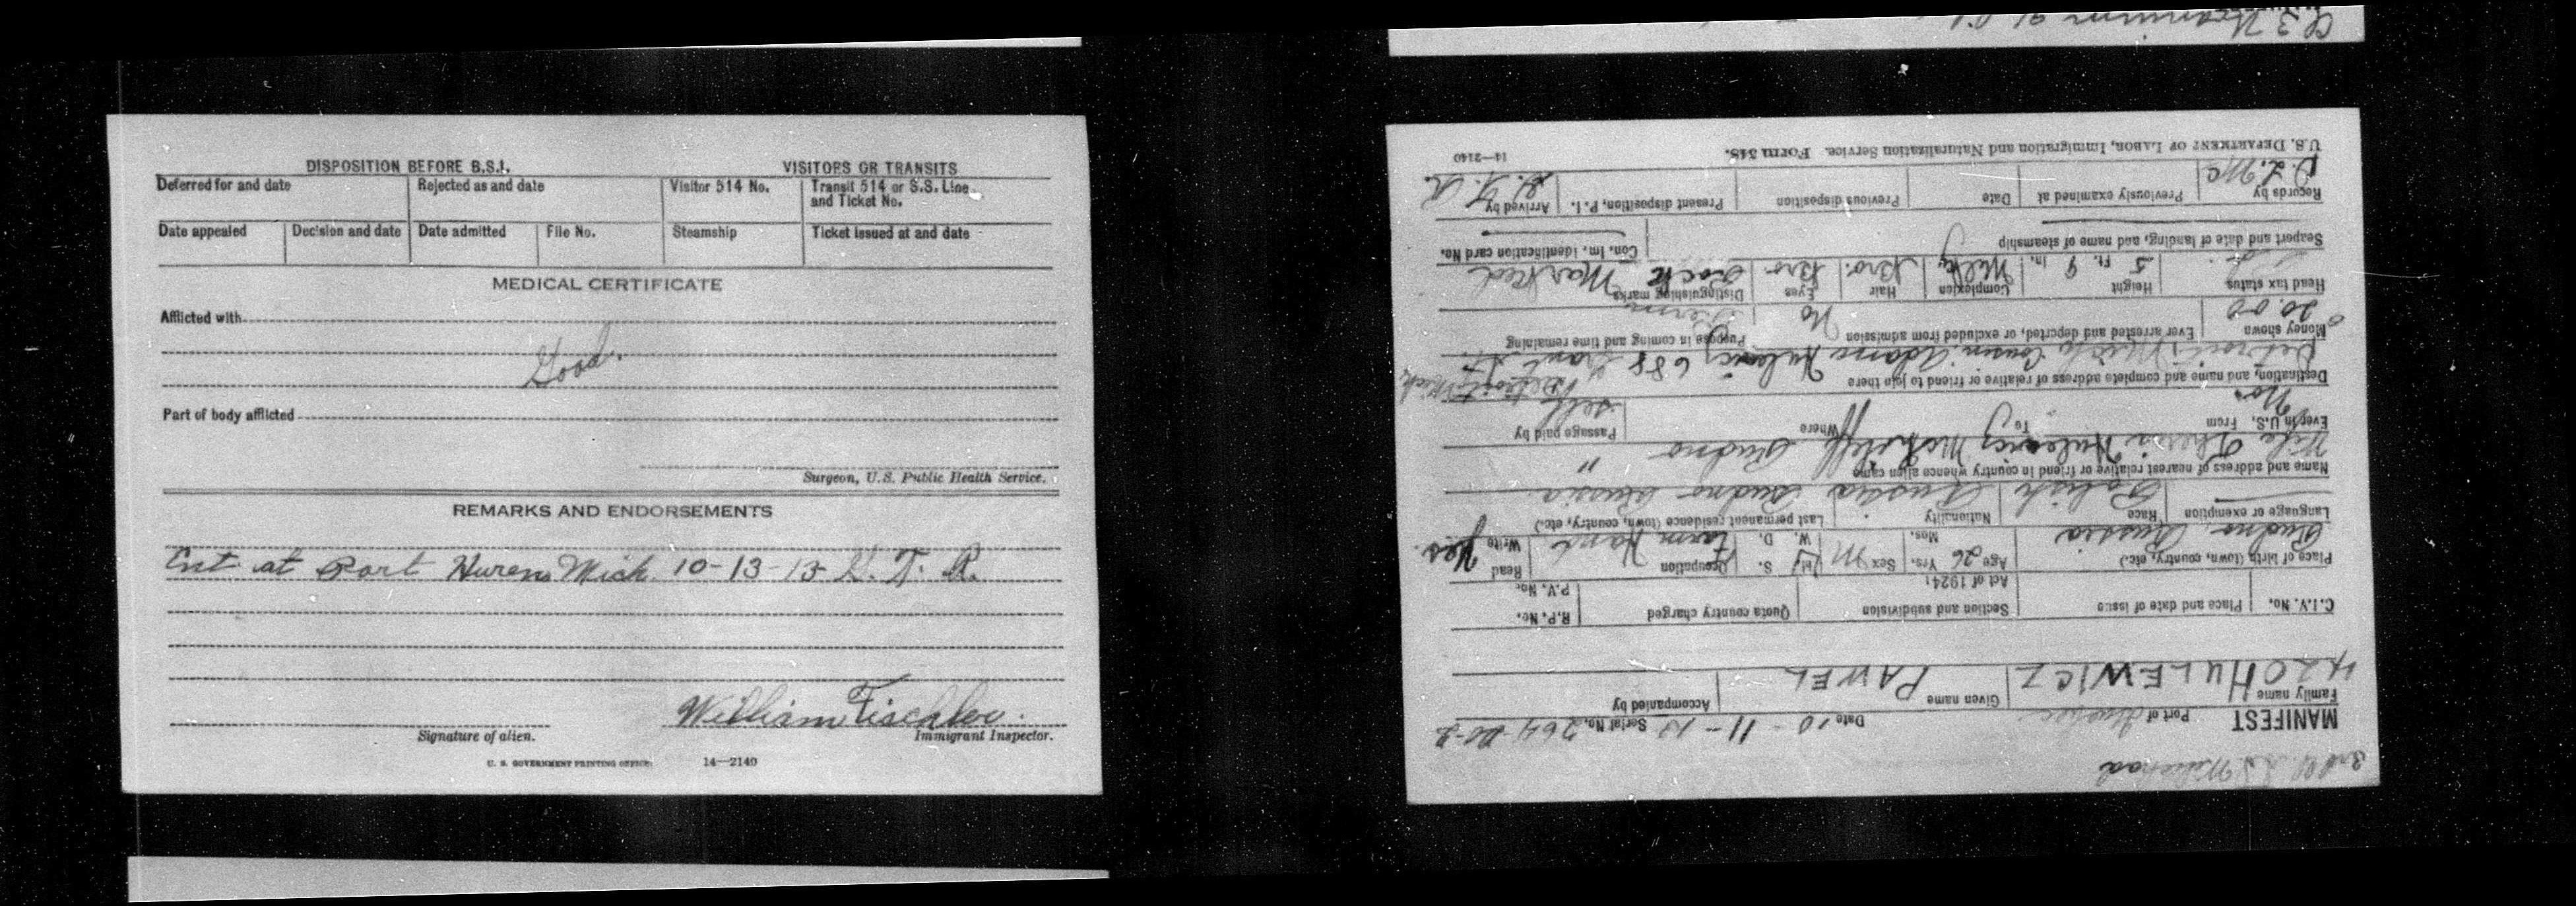 DISPOSITION BEFORE B.S.I. VISITORS OR TRANSITS
Deferred for and date Rejected as and date Visitor 514 No. Transit 514 or S.S. Line and Ticket No.
Date appealed Decision and date Date admitted File No. Steamship Ticket issued at and date
MEDICAL CERTIFICATE
Afflicted with
Good.
Part of body afflicted
Surgeon, U.S. Public Health Service.
REMARKS AND ENDORSEMENTS
Ent at Port Huren Mich. 10-13-13 G. T. R.
William Fischler.
Signature of alien. Immigrant Inspector.
U. S. GOVERNMENT PRINTING OFFICE 14—2140
3rd
MANIFEST Port of Date 10-11-13 Serial No. 264
Family name HULEWICZ Given name PAWEL Accompanied by
H420
C.I.V. No. Place and date of issue Section and subdivision Act of 1924: Quota country charged R.P. No. P.V. No.
Place of birth (town, country, etc.) Age 26 Yrs. Mos. Sex M M. S. W. D. Occupation Farm Hand Read Write Yes.
Gudno Russia
Language or exemption Race Polish Nationality Russia Last permanent residence (town, country, etc.) Gudno Russia
Name and address of nearest relative or friend in country whence alien came
Wife Hulewicz Gudno "
Ever in U.S. No. From To Where Passage paid by self
Destination, and name and complete address of relative or friend to join there
Detroit Mich to Cousin Adam Hulewicz 688 Grant St. Detroit Mich
Money shown 20.00 Ever arrested and deported, or excluded from admission No Purpose in coming and time remaining
Head tax status Height 5 Ft. 9 In. Complexion Milky Hair Bro. Eyes Bro. Distinguishing marks Pock Marked
Seaport and date of landing, and name of steamship Con. Im. identification card No.
Records by Previously examined at Date Previous disposition Present disposition, P. I. Arrived by G. T. R.
U.S. DEPARTMENT OF LABOR, Immigration and Naturalization Service. FORM 548. 14—2140